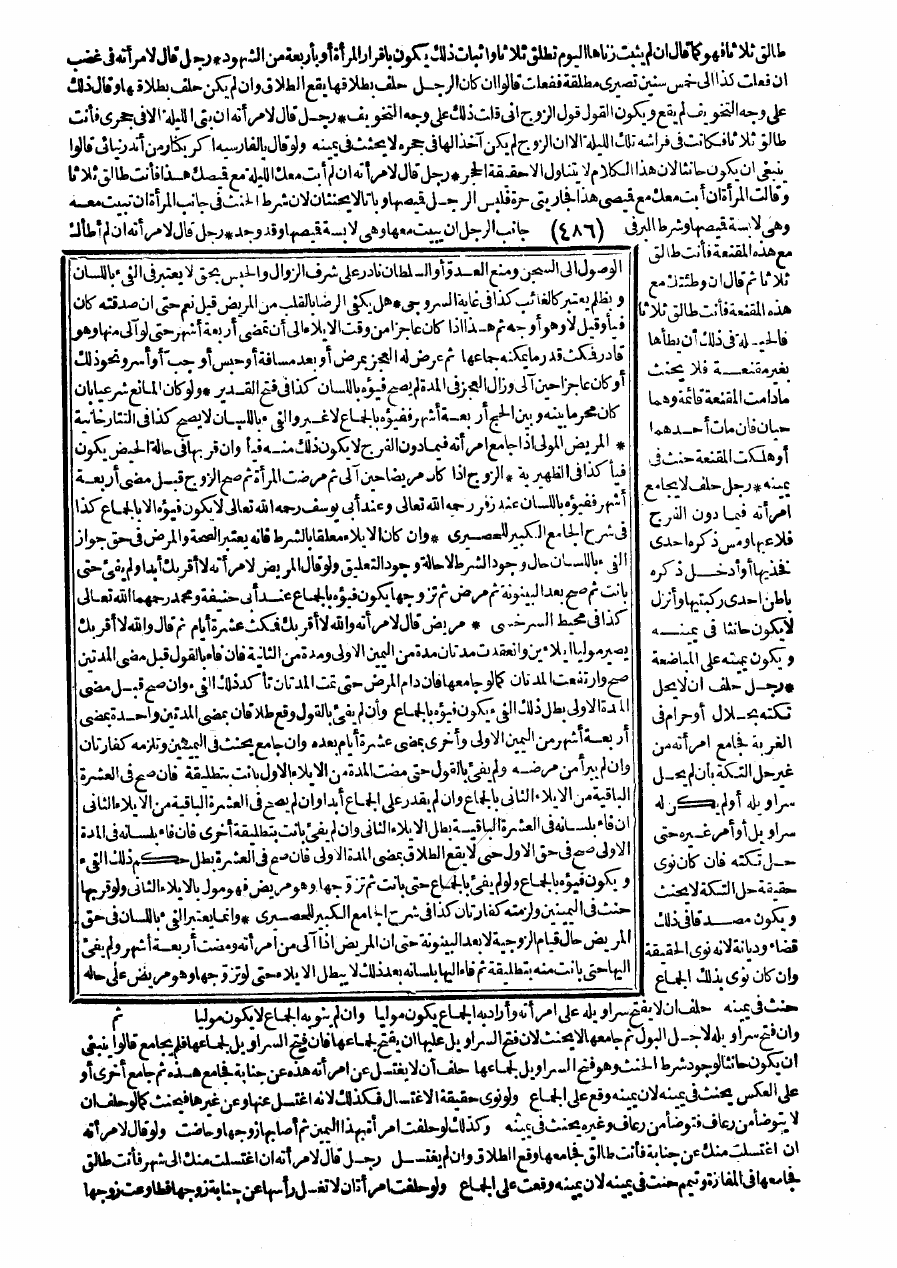 طالق ثلاثا فهو كما قال ان لم يثبت زناها اليوم تطلق ثلاثا واثبات ذلك يكون باقرار المرأة أو بأربعة من الشهود * رجل قال لامرأته فى غضب
ان فعلت كذا الى خمس سنين تصيرى مطلقة ففعلت قالوا ان كان الرجل حلف بطلاقها يقع الطلاق وان لم يكن حلف بطلاقها وقال ذلك
على وجه التخويف لم يقع ويكون القول قول الزوج انى قلت ذلك على وجه التخويف * رجل قال لامرأته ان بتى الليلة الا فى حجرى فأنت
طالق ثلاثا فكانت فى فراشه تلك الليلة الا ان الزوج لم يكن آخذا لها فى حجره لا يحنث فى يمينه ولو قال بالفارسية اكر بكنار من اندر نيائى قالوا
ينبغى ان يكون حانثا لان هذا الكلام لا يتناول الا حقيقة الحجر * رجل قال لامرأته ان لم أبت معك الليلة مع قميصك هذا فأنت طالق ثلاثا
وقالت المرأة ان أبت معك مع قميصى هذا فجاريتى حرة فلبس الرجل قميصها وباتا لا يحنثان لان شرط الحنث فى جانب المرأة ان تبيت معه
وهى لابسة قميصها وشرط البر فى (٤٨٦) جانب الرجل ان يبيت معها وهى لابسة قميصها وقد وجد * رجل قال لامرأته ان لم أطأك
مع هذه المقنعة فأنت طالق
ثلاثا ثم قال ان وطئتك مع
هذه المقنعة فأنت طالق ثلاثا
فالحيلة فى ذلك أن يطأها
بغير مقنعة فلا يحنث
مادامت المقنعة قائمة وهما
حيان فان مات أحدهما
أو هلكت المقنعة حنث فى
يمينه * رجل حلف لا يجامع
امرأته فيما دون الفرج
فلاعبها ومس ذكره احدى
فخذيها أو أدخل ذكره
باطن احدى ركبتيها وأنزل
لا يكون حانثا فى يمينه
ويكون يمينه على المباضعة
* رجل حلف ان لا يحل
تكته بحلال أو حرام فى
الغربة فجامع امرأته من
غير حل التكة بأن لم يحل
سراويله أو لم يكن له
سراويل أو أمر غيره حتى
حل تكته فان كان نوى
حقيقة حل التكة لا يحنث
ويكون مصدقا فى ذلك
قضاء وديانة لانه نوى الحقيقة
وان كان نوى بذلك الجماع
الوصول الى السجن ومنع العدو أو السلطان نادر على شرف الزوال والحبس بحق لا يعتبر فى الفىء باللسان
وبظلم يعتبر كالغائب كذا فى غاية السروجى * هل يكفى الرضا بالقلب من المريض قيل نعم حتى ان صدقته كان
فيأ وقيل لا وهو أوجه ثم هذا اذا كان عاجزا من وقت الايلاء الى أن تمضى أربعة أشهر حتى لو آلى منها وهو
قادر فمكث قدر ما يمكنه جماعها ثم عرض له العجز بمرض أو بعد مسافة أو حبس أو جب أو أسر ونحو ذلك
أو كان عاجزا حين آلى وزال العجز فى المدة لم يصح فيؤه باللسان كذا فى فتح القدير * ولو كان المانع شرعيا بان
كان محرما بينه وبين الحج أربعة أشهر ففيؤه بالجماع لا غير والفىء باللسان لا يصح كذا فى التتارخانية
* المريض المولى اذا جامع امرأته فيما دون الفرج لا يكون ذلك منه فيأ وان قربها فى حالة الحيض يكون
فيأ كذا فى الظهيرية * الزوج اذا كان مريضا حين آلى ثم مرضت المرأة ثم صح الزوج قبل مضى أربعة
أشهر ففيؤه باللسان عند زفر رحمه الله تعالى وعند أبى يوسف رحمه الله تعالى لا يكون فيؤه الا بالجماع كذا
فى شرح الجامع الكبير للحصيرى * وان كان الايلاء معلقا بالشرط فانه يعتبر الصحة والمرض فى حق جواز
الفىء باللسان حال وجود الشرط لا حالة وجود التعليق ولو قال المريض لامرأته لا أقربك أبدا ولم يفئ حتى
بانت ثم صح بعد البينونة ثم مرض ثم تزوجها يكون فيؤه بالجماع عند أبى حنيفة ومحمد رحمهما الله تعالى
كذا فى محيط السرخسى * مريض قال لامرأته والله لا أقربك فمكث عشرة أيام ثم قال والله لا أقربك
يصير موليا ايلاءين وانعقدت مدتان مدة من اليمين الاولى ومدة من الثانية فان فاء بالقول قبل مضى المدتين
صح وارتفعت المدتان كما لو جامعها فان دام المرض حتى تمت المدتان تأكد ذلك الفىء وان صح قبل مضى
المدة الاولى بطل ذلك الفىء ويكون فيؤه بالجماع وان لم يفئ بالقول وقع طلاقان بمضى المدتين واحدة بمضى
أربعة أشهر من اليمين الاولى وأخرى بمضى عشرة أيام بعده وان جامع يحنث فى اليمينين وتلزمه كفارتان
وان لم يبرأ من مرضه ولم يفئ بالقول حتى مضت المدة من الايلاء الاول بانت بتطليقة فان صح فى العشرة
الباقية من الايلاء الثانى بالجماع وان لم يقدر على الجماع أبدا وان لم يصح فى العشرة الباقية من الايلاء الثانى
ان فاء بلسانه فى العشرة الباقية بطل الايلاء الثانى وان لم يفئ بانت بتطليقة أخرى فان فاء بلسانه فى المدة
الاولى صح فى حق الاول حتى لا يقع الطلاق بمضى المدة الاولى فان صح فى العشرة بطل حكم ذلك الفىء
ويكون فيؤه بالجماع ولو لم يفئ بالجماع حتى بانت ثم تزوجها وهو مريض فهو مول بالايلاء الثانى ولو قربها
حنث فى اليمينين ولزمته كفارتان كذا فى شرح الجامع الكبير للحصيرى * وانما يعتبر الفىء باللسان فى حق
المريض حال قيام الزوجية لا بعد البينونة حتى ان المريض اذا آلى من امرأته ومضت أربعة أشهر ولم يفئ
اليها حتى بانت منه بتطليقة ثم فاء اليها بلسانه بعد ذلك لا يبطل الايلاء حتى لو تزوجها وهو مريض على حاله
ثم
حنث فى يمينه حلف ان لا يفتح سراويله على امرأته وأراد به الجماع يكون موليا وان لم ينو به الجماع لا يكون موليا
وان فتح سراويله لاجل البول ثم جامعها لا يحنث لان فتح السراويل عليها ان يفتح لجماعها فان فتح السراويل لجماعها فلم يجامع قالوا ينبغى
ان يكون حانثا لوجود شرط الحنث وهو فتح السراويل لجماعها حلف أن لا يغتسل عن امرأته هذه عن جنابة فجامع هذه ثم جامع أخرى أو
على العكس يحنث فى يمينه لان يمينه وقع على الجماع ولو نوى حقيقة الاغتسال فكذلك لانه اغتسل عنها وعن غيرها فيحنث كما لو حلف ان
لا يتوضأ من رعاف فتوضأ من رعاف وغيره يحنث فى يمينه وكذلك لو حلفت امرأة بهذا اليمين ثم أصابها زوجها وحاضت ولو قال لامرأته
ان اغتسلت منك عن جنابة فأنت طالق فجامعها وقع الطلاق وان لم يغتسل رجل قال لامرأته ان اغتسلت منك الى شهر فأنت طالق
فجامعها فى المفازة وتيمم حنث فى يمينه لان يمينه وقعت على الجماع ولو حلفت امرأة ان لا تغسل رأسها عن جنابة زوجها فطاوعت زوجها